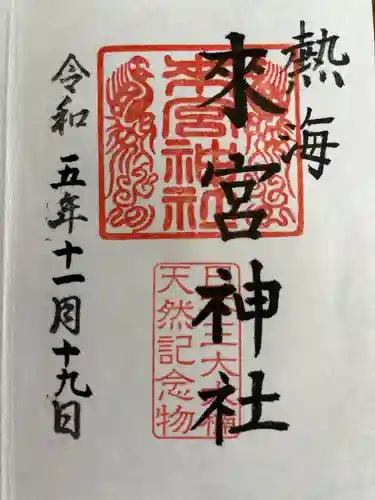 熱海
來宮神社
來宮神社
天然記念物
令和五年十一月十九日